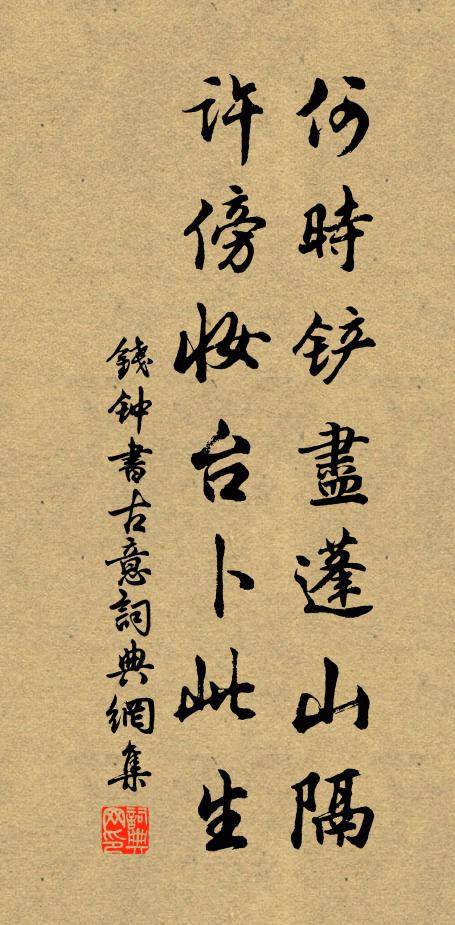 何時铲盡蓬山隔
许傍妝台卜此生
錢钟書古意詞典網集
詞典網印